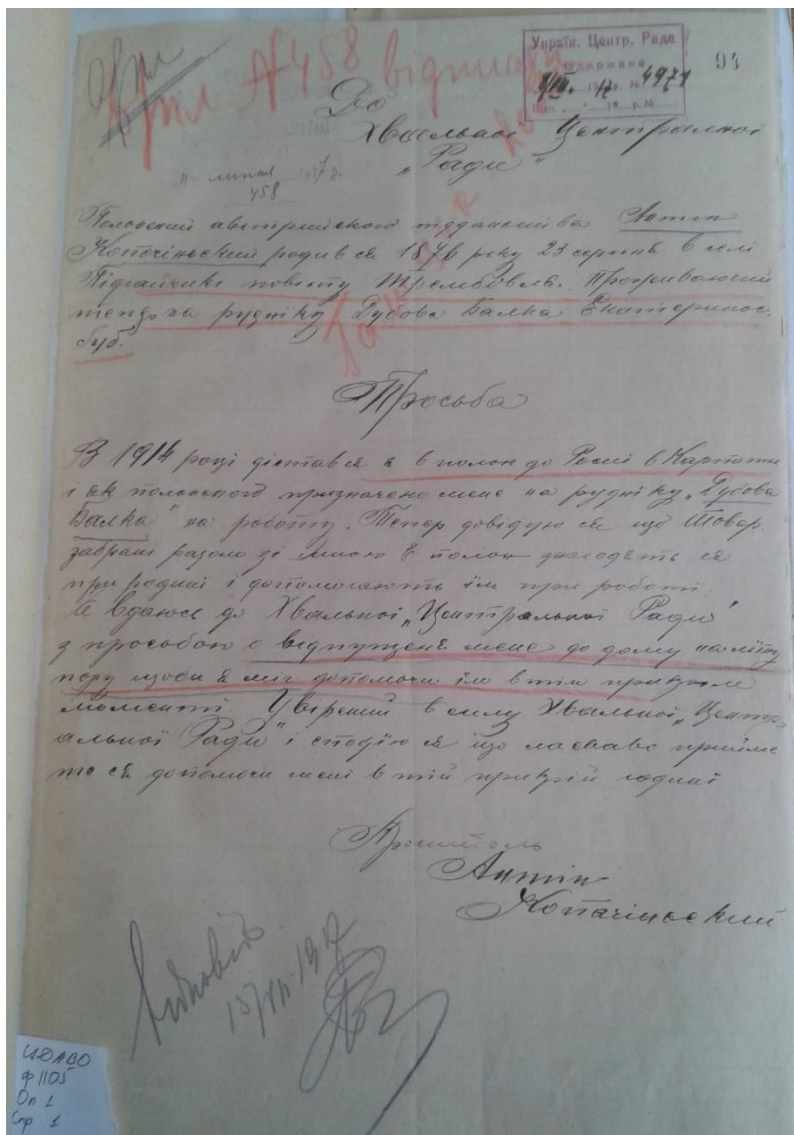 Україн. Центр. Рада
Одержано
№ 4971
94
№ 458
До
Хвальної Центральної
„Ради"
11 липня 1917 р.
458
Полонений австрийского підданьства Антін
Копачіньский родив ся 1876 року 23 серпня в селі
Підгайчикі повіту Трембовля. Проживаючий
тепер на рудніку Дубова Балка Екатеринос.
губ.
Просьба
В 1914 році дістався я в полон до Росиї в Карпатах
і як полонского призначено мене на рудніку „Дубова
Балка" на роботу. Тепер довідую ся що Товар.
забрані разом зі мною в полон знаходять ся
при родині і допомогають їм при роботі.
Я вдаюсь до Хвальної „Центральної Ради"
з просьбою о відпущенє мене до дому на літну
пору щоби я міг допомочи їм в тім прикрім
моменті. Увірений в силу Хвальної „Центр-
альної Ради" і сподію ся що ласкаво прийме
те ся допомочи мені в тій прикрій годині
Проситель
Антін
Копачінский
Відповід
15/VII. 1917
ЦДАВО
ф 1105
Оп 1
Спр 1